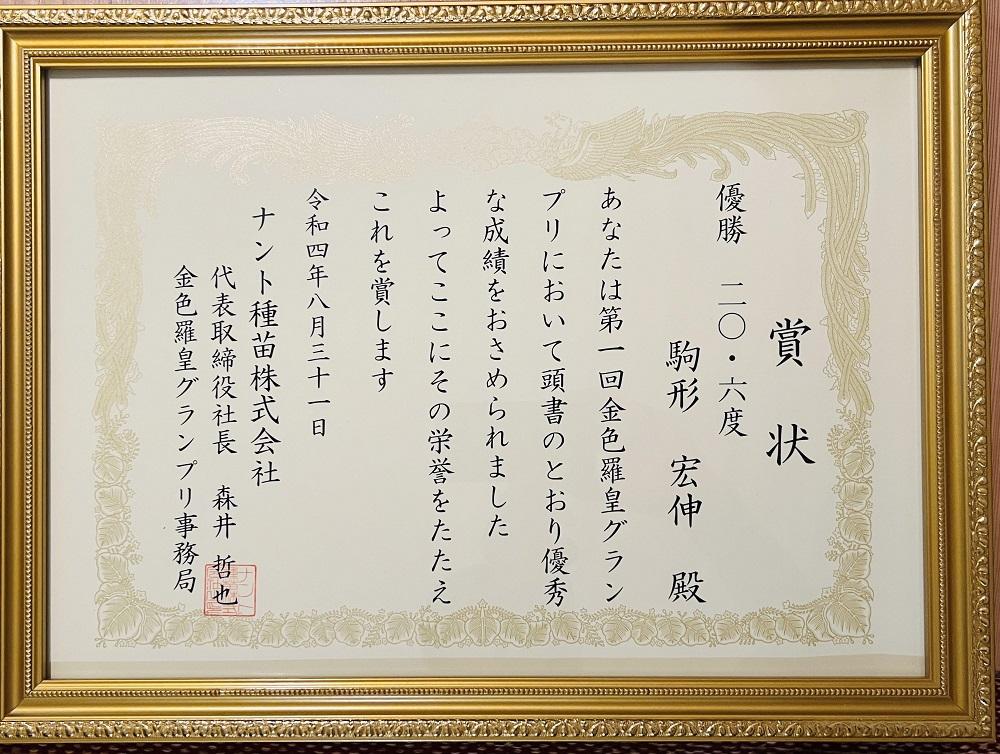 賞状
優勝 二〇・六度
駒形 宏伸 殿
あなたは第一回金色羅皇グラン
プリにおいて頭書のとおり優秀
な成績をおさめられました
よってここにその栄誉をたたえ
これを賞します
令和四年八月三十一日
ナント種苗株式会社
代表取締役社長 森井 哲也
金色羅皇グランプリ事務局